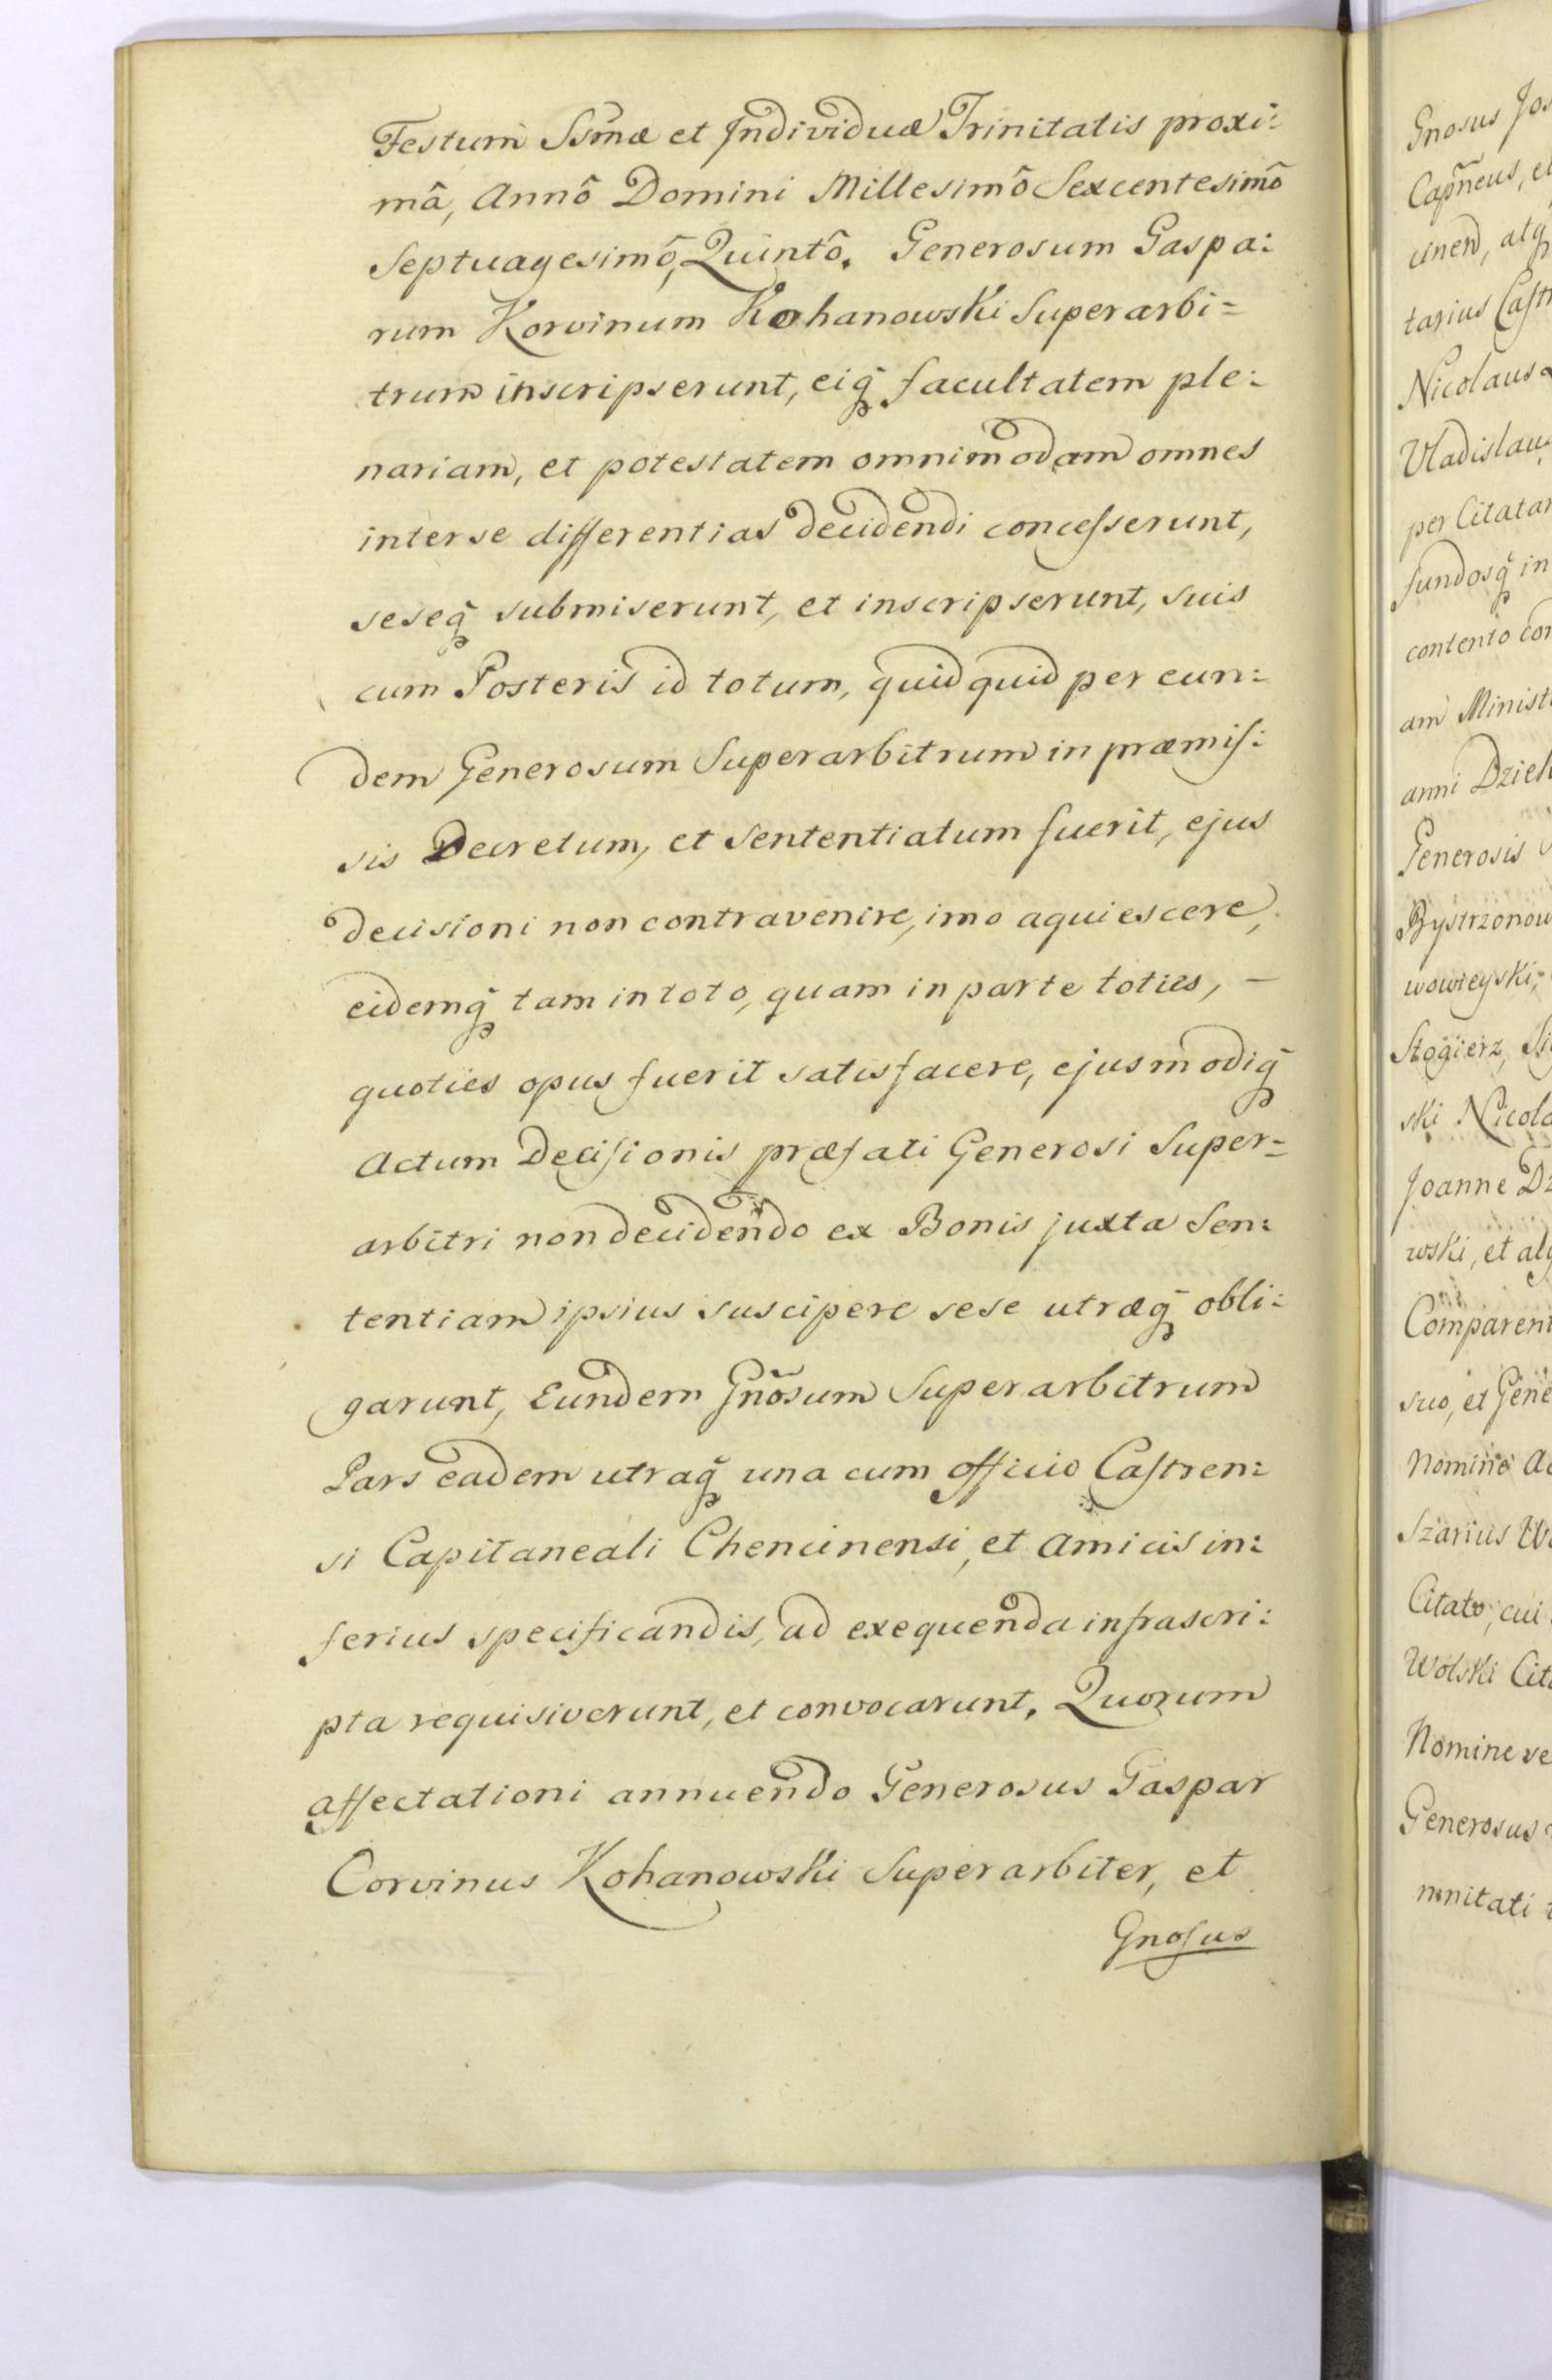 Festum Ssmæ et Individuæ Trinitatis proxi:
mâ, Annô Domini Millesimô Sexcentesimô
Septuagesimô, Quintô. Generosum Gaspa:
rum Korvinum Kohanowski Superarbi=
trum inscripserunt, eiq̃ facultatem ple:
nariam, et potestatem omnimodam omnes
inter se differentias decidendi concesserunt,
seseq̃ submiserunt, et inscripserunt, suis
cum Posteris id totum, quidquid per eun:
dem Generosum Superarbitrum in præmis:
sis Decretum, et Sententiatum fuerit, ejus
decisioni non contravenire, imo aquiescere,
eidemq̃ tam in toto, quam in parte toties, –
quoties opus fuerit satisfacere, ejusmodiq̃
Actum Decisionis præfati Generosi Super=
arbitri non decidendo ex Bonis juxta Sen:
tentiam ipsius suscipere sese utræq̃ obli:
garunt, Eundem Gnõsum Superarbitrum
Pars eadem utraq̃ una cum Officio Castren:
si Capitaneali Chencinensi, et Amicis in:
ferius specificandis, ad exequenda infrascri:
pta requisiverunt, et convocarunt. Quorum
affectationi annuendo Generosus Gaspar
Corvinus Kohanowski Superarbiter, et
Gnosus
Gnosus Jos
Capñeus, et
unend, atq
tarius Castr
Nicolaus
Vladislaus
per Citatar
fundosq̃ in
contento con
am Minist
anni Dziek
Generosis
Bystrzonow
wowieyski,
Stogierz,
ski Nicola
Joanne Dz
wski, et atq
Comparent
suo, et Gene
Nomine Ac
Szarius
Citato, cui
Wolski Cit
Nomine ve
Generosus
mnitati